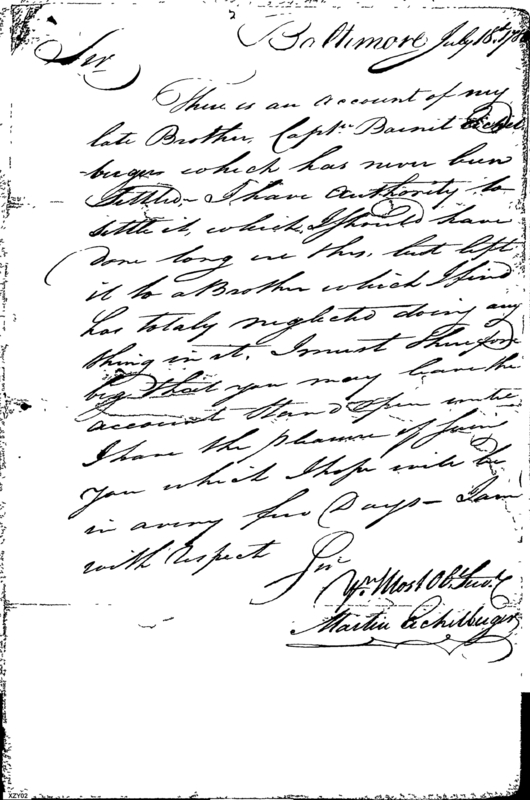 Baltimore July 18th 178
Sir
There is an account of my
late Brother, Captn Barnit Eichel
bergers which has never been
Settled – I have authority to
settle it, which I should have
done long ere this, but left
it to a Brother which I find
has totaly neglected doing any
thing in it. I must therefore
beg that you may leave the
account stand open untill
I have the pleasure of seeing
you which I hope will be
in a very few Days – I am
with respect
Sir
Yr Most Obt Servt
Martin Eichelberger
XZY02